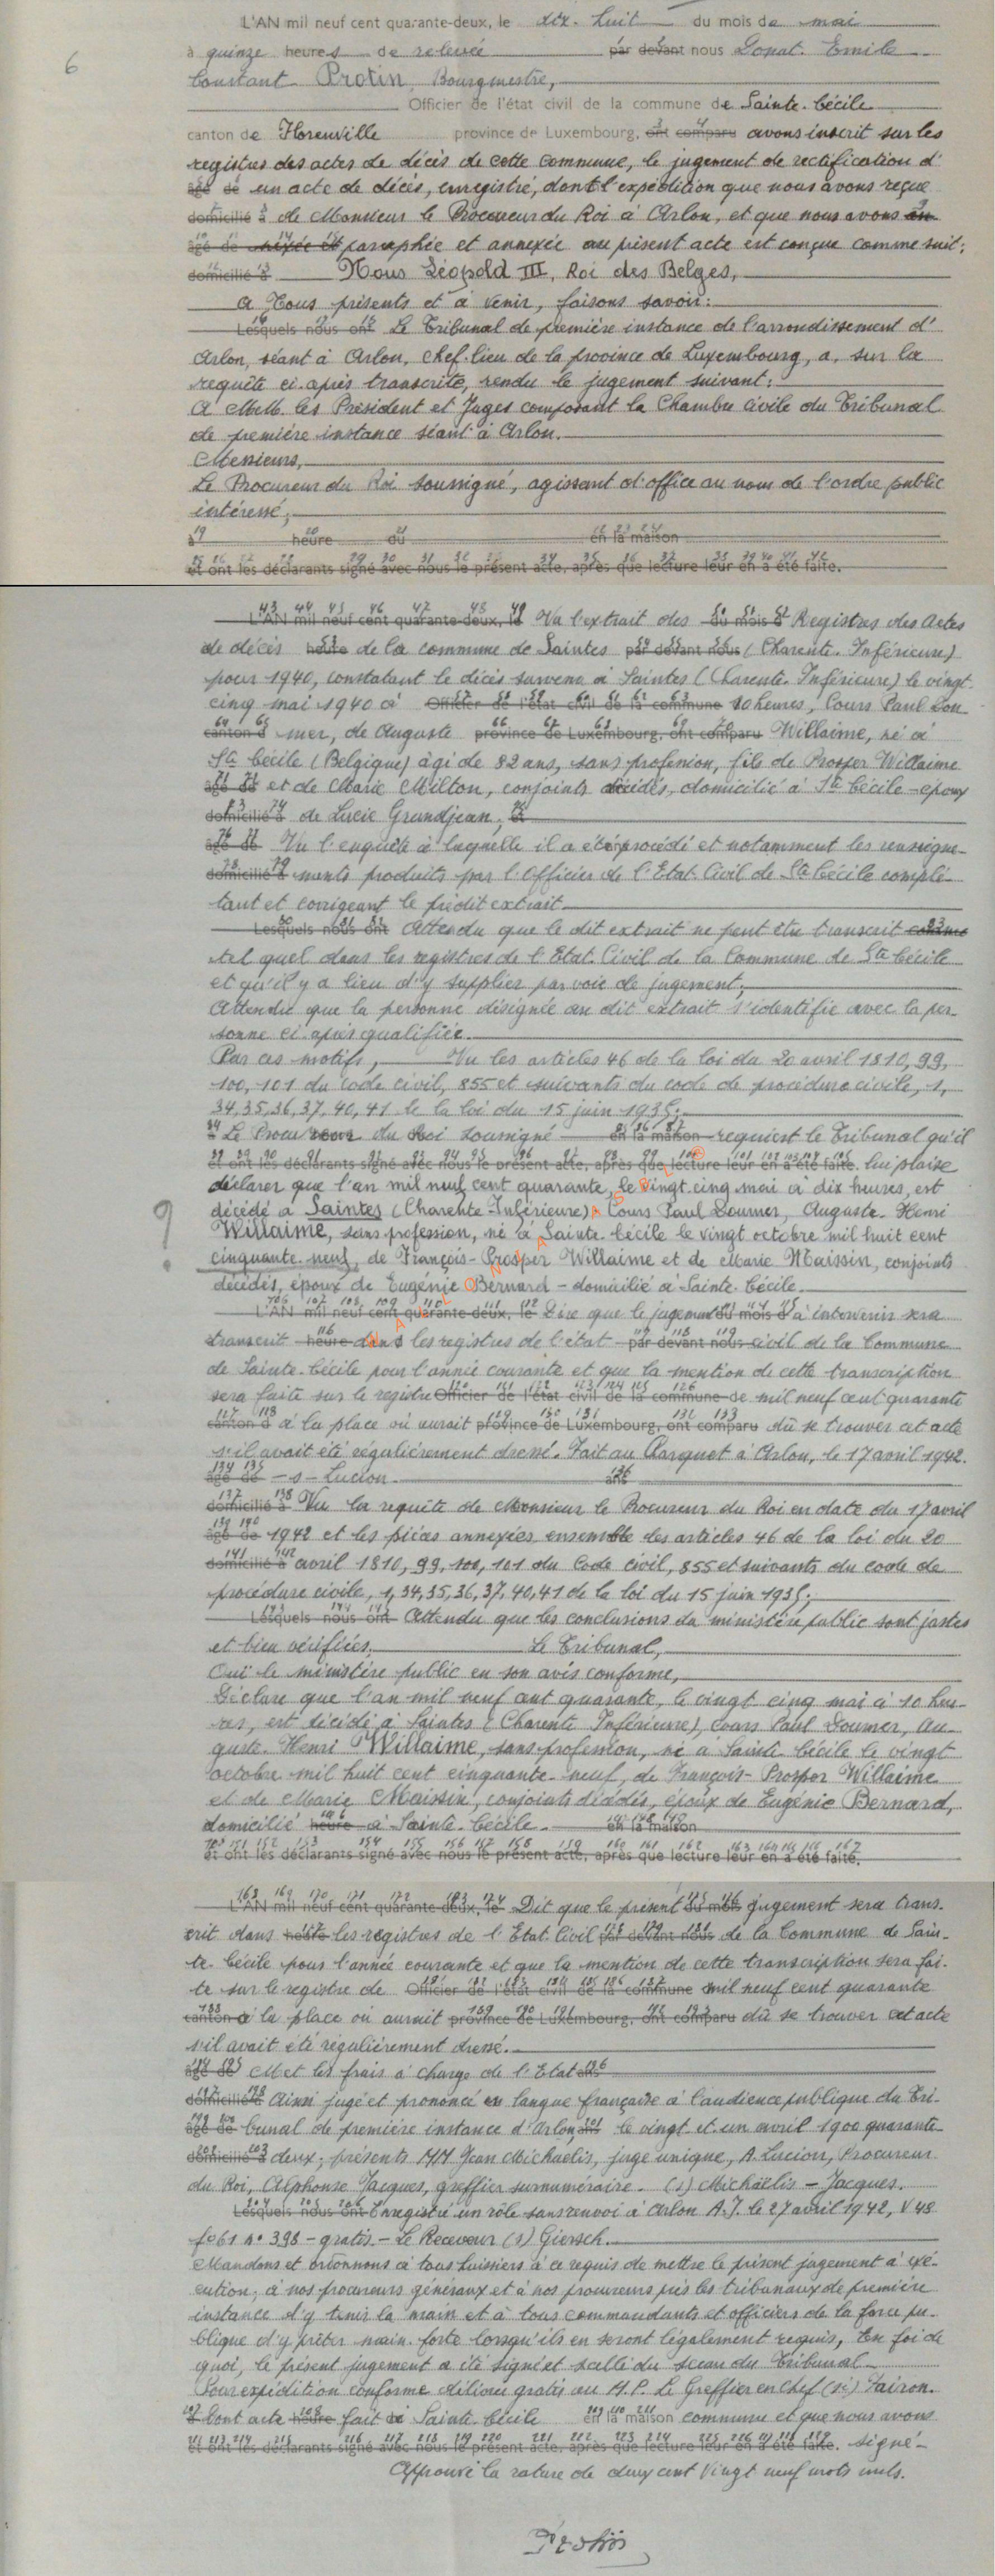 L'AN mil neuf cent quarante-deux, le dix-huit du mois de mai
6
à quinze heures de relevée par devant nous Donat-Emile
Constant Protin, Bourgmestre,
Officier de l'état civil de la commune de Sainte-Cécile
canton de Florenville province de Luxembourg, ont comparu avons inscrit sur les
registres des actes de décès de cette commune, le jugement de rectification d'
âgé de un acte de décès, enregistré, dont l'expédition que nous avons reçue
domicilié à de Monsieur le Procureur du Roi à Arlon, et que nous avons
âgé de annexée et paraphée et annexée au présent acte est conçue comme suit:
domicilié à Nous Léopold III, Roi des Belges,
A Tous présents et à venir, faisons savoir:
Lesquels nous ont Le Tribunal de première instance de l'arrondissement d'
Arlon, séant à Arlon, chef-lieu de la province de Luxembourg, a, sur la
requête ci-après transcrite, rendu le jugement suivant:
A MM. les Président et Juges composant la Chambre civile du Tribunal
de première instance séant à Arlon.
Messieurs,
Le Procureur du Roi soussigné, agissant d'office au nom de l'ordre public
intéressé;
à heure du en la maison
et ont les déclarants signé avec nous le présent acte, après que lecture leur en a été faite.
L'AN mil neuf cent quarante-deux, le Vu l'extrait des du mois d Registres des Actes
de décès heure de la commune de Saintes par devant nous (Charente-Inférieure)
pour 1940, constatant le décès survenu à Saintes (Charente-Inférieure) le vingt-
cinq mai 1940 à Officier de l'état civil de la commune 10 heures, Cours Paul Dou-
canton d mer, de Auguste province de Luxembourg, ont comparu Willaime, né à
Ste Cécile (Belgique) âgé de 82 ans, sans profession, fils de Prosper Willaime
âgé de et de Marie Milton, conjoints décédés, domicilié à Ste Cécile - époux
domicilié à de Lucie Grandjean;
âgé de Vu l'enquête à laquelle il a été procédé et notamment les renseigne-
domicilié à ments produits par l'Officier de l'Etat-Civil de Ste Cécile complé-
tant et corrigeant le prédit extrait.
Lesquels nous ont Attendu que le dit extrait ne peut être transcrit comme
tel quel dans les registres de l'Etat-Civil de la Commune de Ste Cécile
et qu'il y a lieu d'y suppléer par voie de jugement;
Attendu que la personne désignée au dit extrait s'identifie avec la per-
sonne ci-après qualifiée.
Par ces motifs, Vu les articles 46 de la loi du 20 avril 1810, 99,
100, 101 du code civil, 855 et suivants du code de procédure civile, 1,
34, 35, 36, 37, 40, 41 de la loi du 15 juin 1935;
à Le Procureur du Roi soussigné en la maison requiert le Tribunal qu'il
et ont les déclarants signé avec nous le présent acte, après que lecture leur en a été faite. lui plaise
déclarer que l'an mil neuf cent quarante, le vingt-cinq mai à dix heures, est
décédé à Saintes (Charente-Inférieure) Cours Paul Doumer, Auguste-Henri
Willaime, sans profession, né à Sainte-Cécile le vingt octobre mil huit cent
cinquante-neuf, de François-Prosper Willaime et de Marie Maissin, conjoints
décédés, époux de Eugénie Bernard - domicilié à Sainte-Cécile.
L'AN mil neuf cent quarante-deux, le Dire que le jugement du mois d à intervenir sera
transcrit heure dans les registres de l'état par devant nous civil de la Commune
de Sainte-Cécile pour l'année courante et que la mention de cette transcription
sera faite sur le registre Officier de l'état civil de la commune de mil neuf cent quarante
canton d à la place où aurait province de Luxembourg, ont comparu dû se trouver cet acte
s'il avait été régulièrement dressé. Fait au Parquet à Arlon, le 17 avril 1942.
âgé de - s - Lucion. ans
domicilié à Vu la requête de Monsieur le Procureur du Roi en date du 17 avril
âgé de 1942 et les pièces annexées, ensemble les articles 46 de la loi du 20
domicilié à avril 1810, 99, 100, 101 du Code civil, 855 et suivants du code de
procédure civile, 1, 34, 35, 36, 37, 40, 41 de la loi du 15 juin 1935;
Lesquels nous ont Attendu que les conclusions du ministère public sont justes
et bien vérifiées, Le Tribunal,
Ouï le ministère public en son avis conforme,
Déclare que l'an mil neuf cent quarante, le vingt cinq mai à 10 heu-
res, est décédé à Saintes (Charente Inférieure), cours Paul Doumer, Au-
guste-Henri Willaime, sans profession, né à Sainte-Cécile le vingt
octobre mil huit cent cinquante-neuf, de François-Prosper Willaime
et de Marie Maissin, conjoints décédés, époux de Eugénie Bernard,
domicilié heure à Sainte-Cécile. en la maison
et ont les déclarants signé avec nous le présent acte, après que lecture leur en a été faite.
L'AN mil neuf cent quarante-deux, le Dit que le présent du mois jugement sera trans-
crit dans heure les registres de l'Etat-Civil par devant nous de la Commune de Sain-
te-Cécile pour l'année courante et que la mention de cette transcription sera fai-
te sur le registre de Officier de l'état civil de la commune mil neuf cent quarante
canton d à la place où aurait province de Luxembourg, ont comparu dû se trouver cet acte
s'il avait été régulièrement dressé.
âgé de Met les frais à charge de l'Etat ans
domicilié à Ainsi jugé et prononcé en langue française à l'audience publique du Tri-
âgé de bunal de première instance d'Arlon, ans le vingt et un avril 1900 quarante-
domicilié à deux; présents MM Jean Michaëlis, juge unique, A. Lucion, Procureur
du Roi, Alphonse Jacques, greffier surnuméraire. (s) Michaëlis - Jacques.
Lesquels nous ont Enregistré un rôle sans renvoi à Arlon A.J. le 27 avril 1942, V 48
fo 61 no 398 - gratis. - Le Receveur (s) Giersch.
Mandons et ordonnons à tous huissiers à ce requis de mettre le présent jugement à exé-
cution; à nos procureurs généraux et à nos procureurs près les tribunaux de première
instance d'y tenir la main et à tous commandants et officiers de la force pu-
blique d'y prêter main-forte lorsqu'ils en seront légalement requis, En foi de
quoi, le présent jugement a été signé et scellé du sceau du Tribunal
Pour expédition conforme délivrée gratis au M.P. Le Greffier en Chef (si) Fairon.
à Dont acte heure fait à Sainte-Cécile en la maison commune et que nous avons
et ont les déclarants signé avec nous le présent acte, après que lecture leur en a été faite. signé-
Approuvé la rature de deux cent vingt neuf mots nuls.
Protin